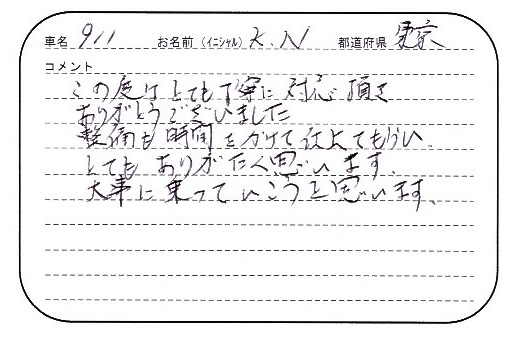 車名 911 お名前（イニシャル）K.N 都道府県 東京
コメント
この度はとても丁寧に対応頂き
ありがとうございました
整備も時間をかけて仕上てもらい
とてもありがたく思います。
大事に乗っていこうと思います。